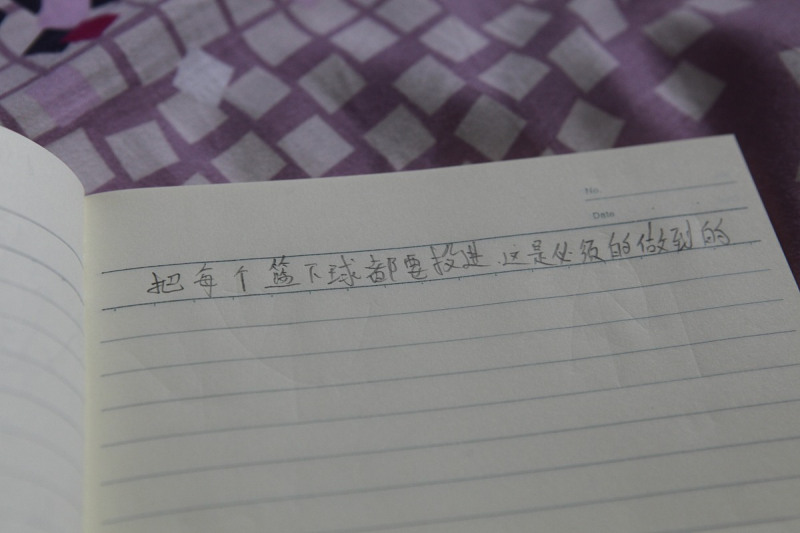 No.
Date
把每个篮下球都要投进 这是必须的做到的